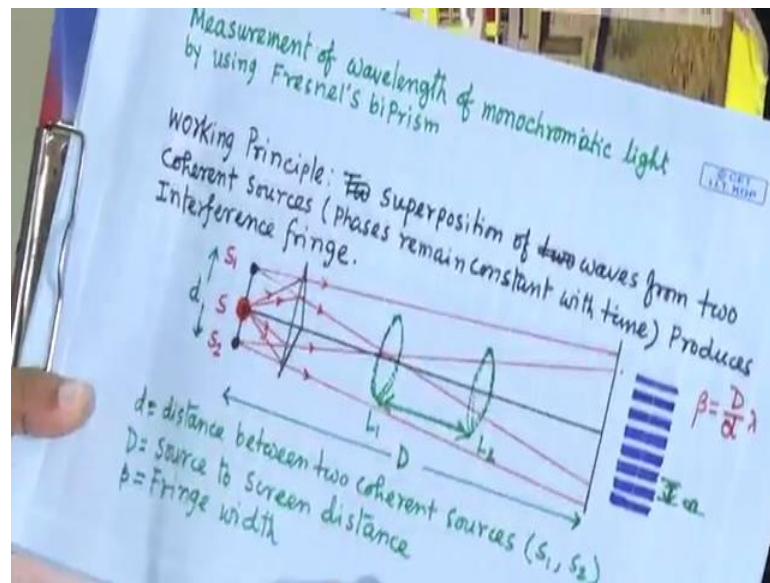 Measurement of wavelength of monochromatic light
by using Fresnel's biPrism
Working Principle: Superposition of waves from two
Coherent Sources (Phases remain constant with time) Produces
Interference fringe.
S1
d
S
S2
L1
L2
D
β = D/d λ
d = distance between two coherent sources (S1, S2)
D = Source to screen distance
β = Fringe width